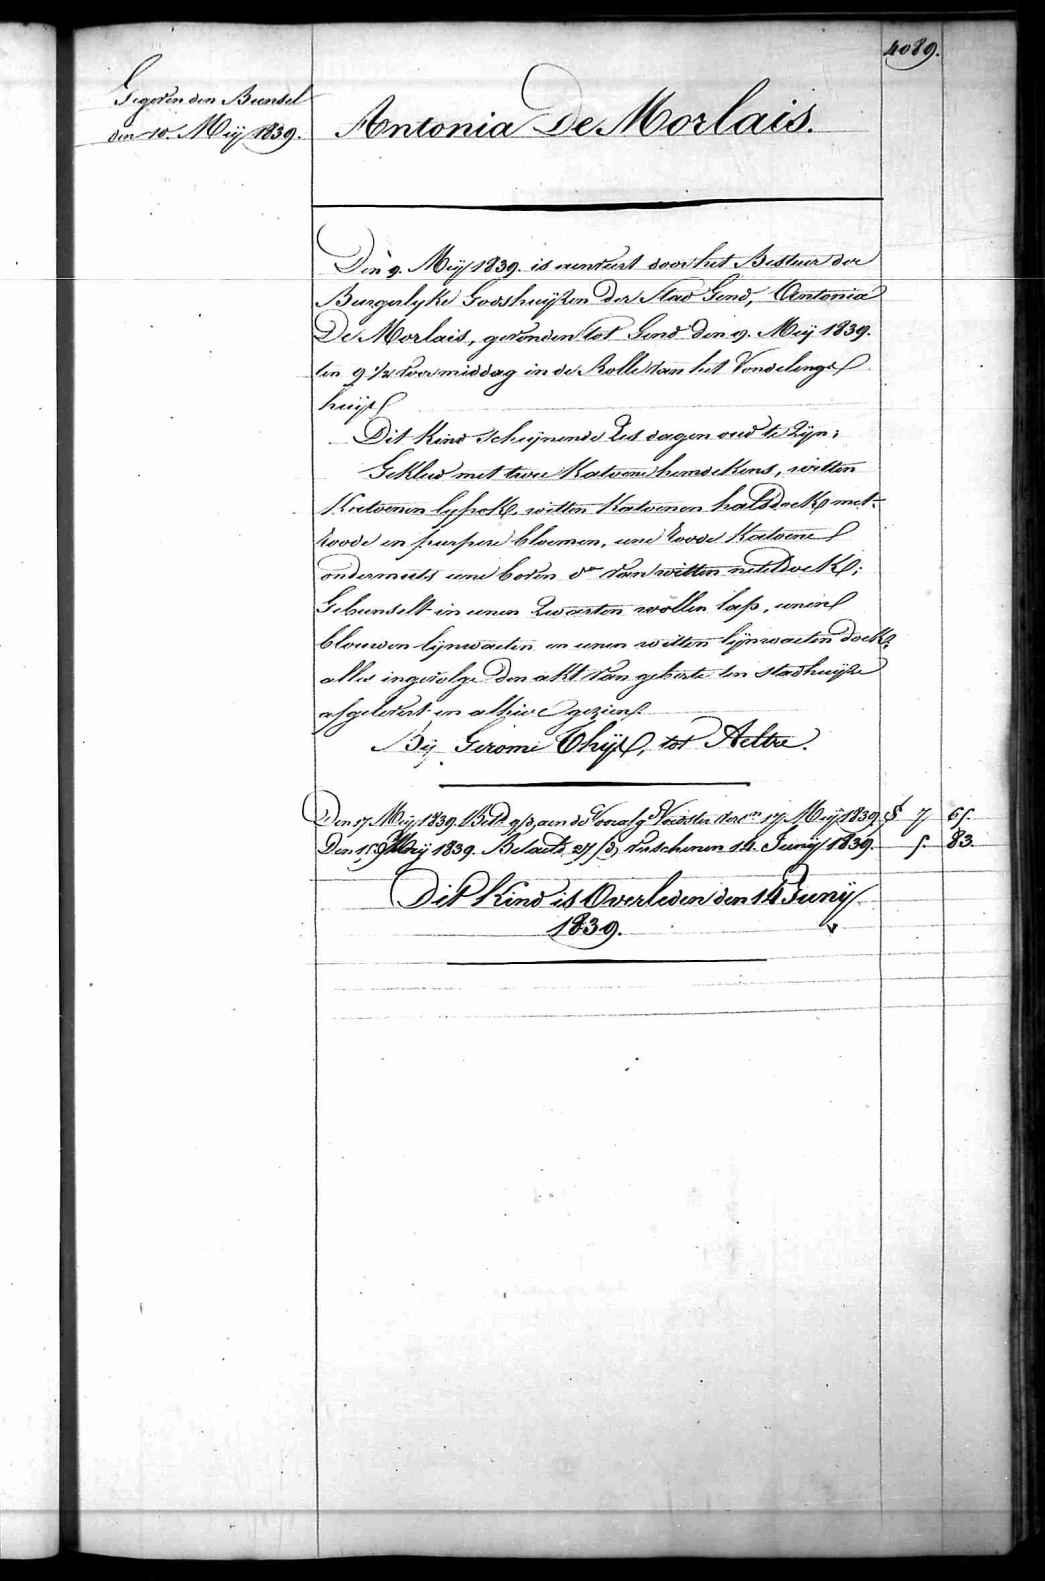 4089.
Gegeven den Bunsel
den 10. Meij 1839.
Antonia De Morlais.
Den 9. Meij 1839. is aenveert door het Bestuer der
Burgerlyke Godshuijzen der Stad Gend, Antonia
De Morlais, gevonden tot Gend den 9. Meij 1839.
ten 9 1/2 voormiddag in de Rolle van het Vondelings
huijs
Dit Kind schijnende zes dagen oud te zijn;
Gekleed met twee Katoene hemdekens, witten
Katoenen lyfrok, witten Katoenen halsdoek met
roode en purpere bloemen, eene roode Katoene
ondermuts eene boven do van witten neteldoek;
Gebunselt in eenen zwarten wollen lap, eenen
blauwen lijnwaeten en eenen witten lijnwaeten doek;
alles ingevolge den akt van geborte ten stadhuijze
afgelevert en alhier gezien.
Bij Gerome Thijs, tot Aeltre.
Den 17 Meij 1839. Betd. 9/3 aen de Voorafge Voedster 17 Meij 1839 § 7 65.
Den 15 Meij 1839. Betaeld 27/3 verschenen 14. Junij 1839. 5. 83.
Dit Kind is Overleden den 14 Junij
1839.